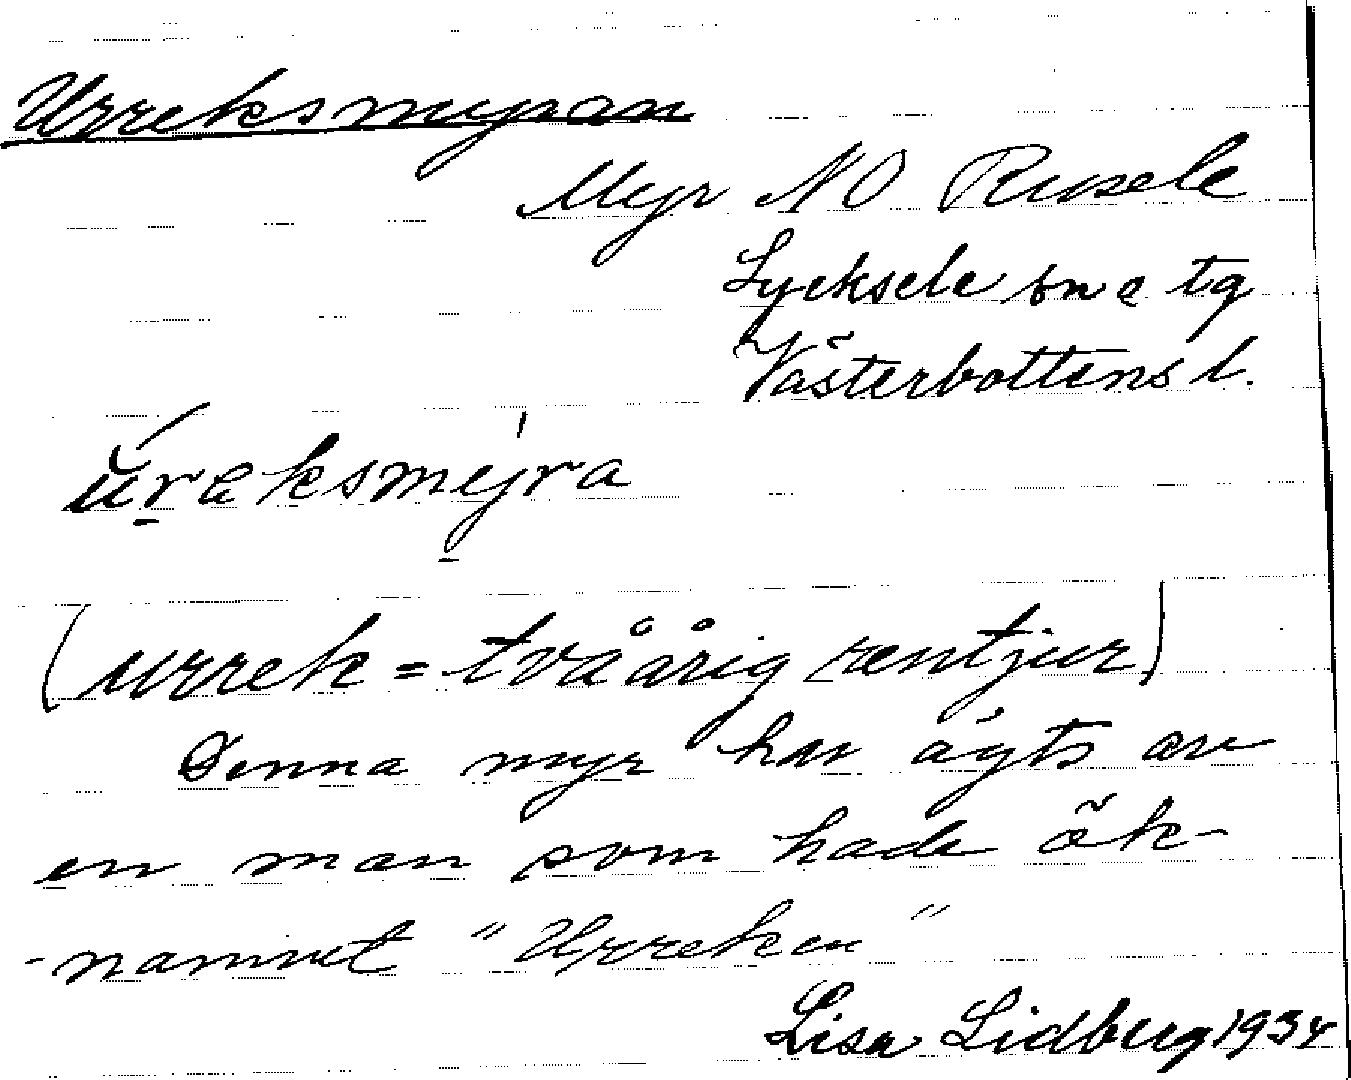 Urreksmyran
Myr NO Rusele
Lycksele sn o tg
Västerbottens l.
ŭ́rĕksmy̱̍ra
(urrek = tvåårig rentjur)
Denna myr har ägts av
en man som hade ök-
-namnet "Urreken"
Lisa Lidberg 1934